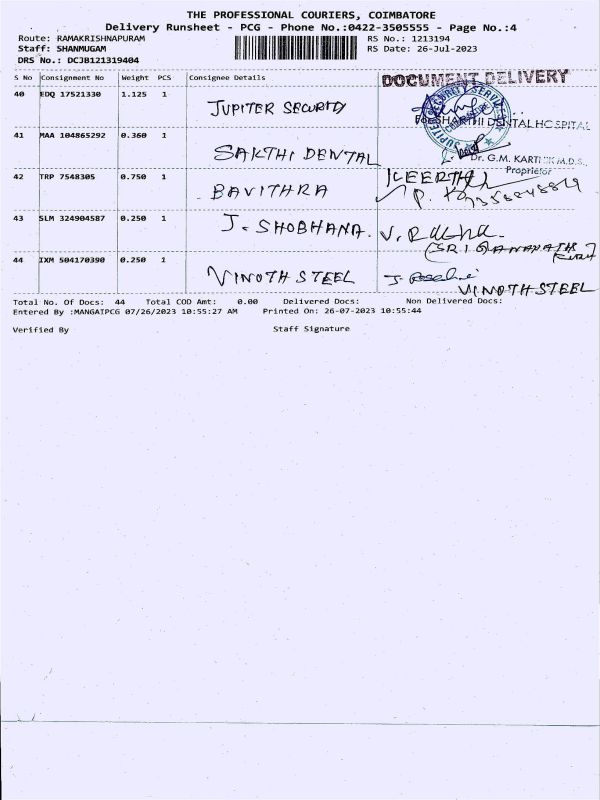 THE PROFESSIONAL COURIERS, COIMBATORE
Delivery Runsheet - PCG - Phone No.:0422-3505555 - Page No.:4
Route: RAMAKRISHNAPURAM RS No.: 1213194
Staff: SHANMUGAM RS Date: 26-Jul-2023
DRS No.: DCJB121319404
DOCUMENT DELIVERY
S No Consignment No Weight PCS Consignee Details
40 EDQ 17521330 1.125 1 JUPITER SECURITY
JUPITER SECURITY SERVICES
COIMBATORE
DENTAL HOSPITAL
41 MAA 104865292 0.360 1 SAKTHI DENTAL
Dr. G.M. KARTHIK M.D.S.,
Proprietor
42 TRP 7548305 0.750 1 BAVITHRA
KEERTHI
43 SLM 324904587 0.250 1 J. SHOBHANA.
44 IXM 504170390 0.250 1 VINOTH STEEL
VINOTH STEEL
Total No. Of Docs: 44 Total COD Amt: 0.00 Delivered Docs: Non Delivered Docs:
Entered By :MANGAIPCG 07/26/2023 10:55:27 AM Printed On: 26-07-2023 10:55:44
Verified By Staff Signature